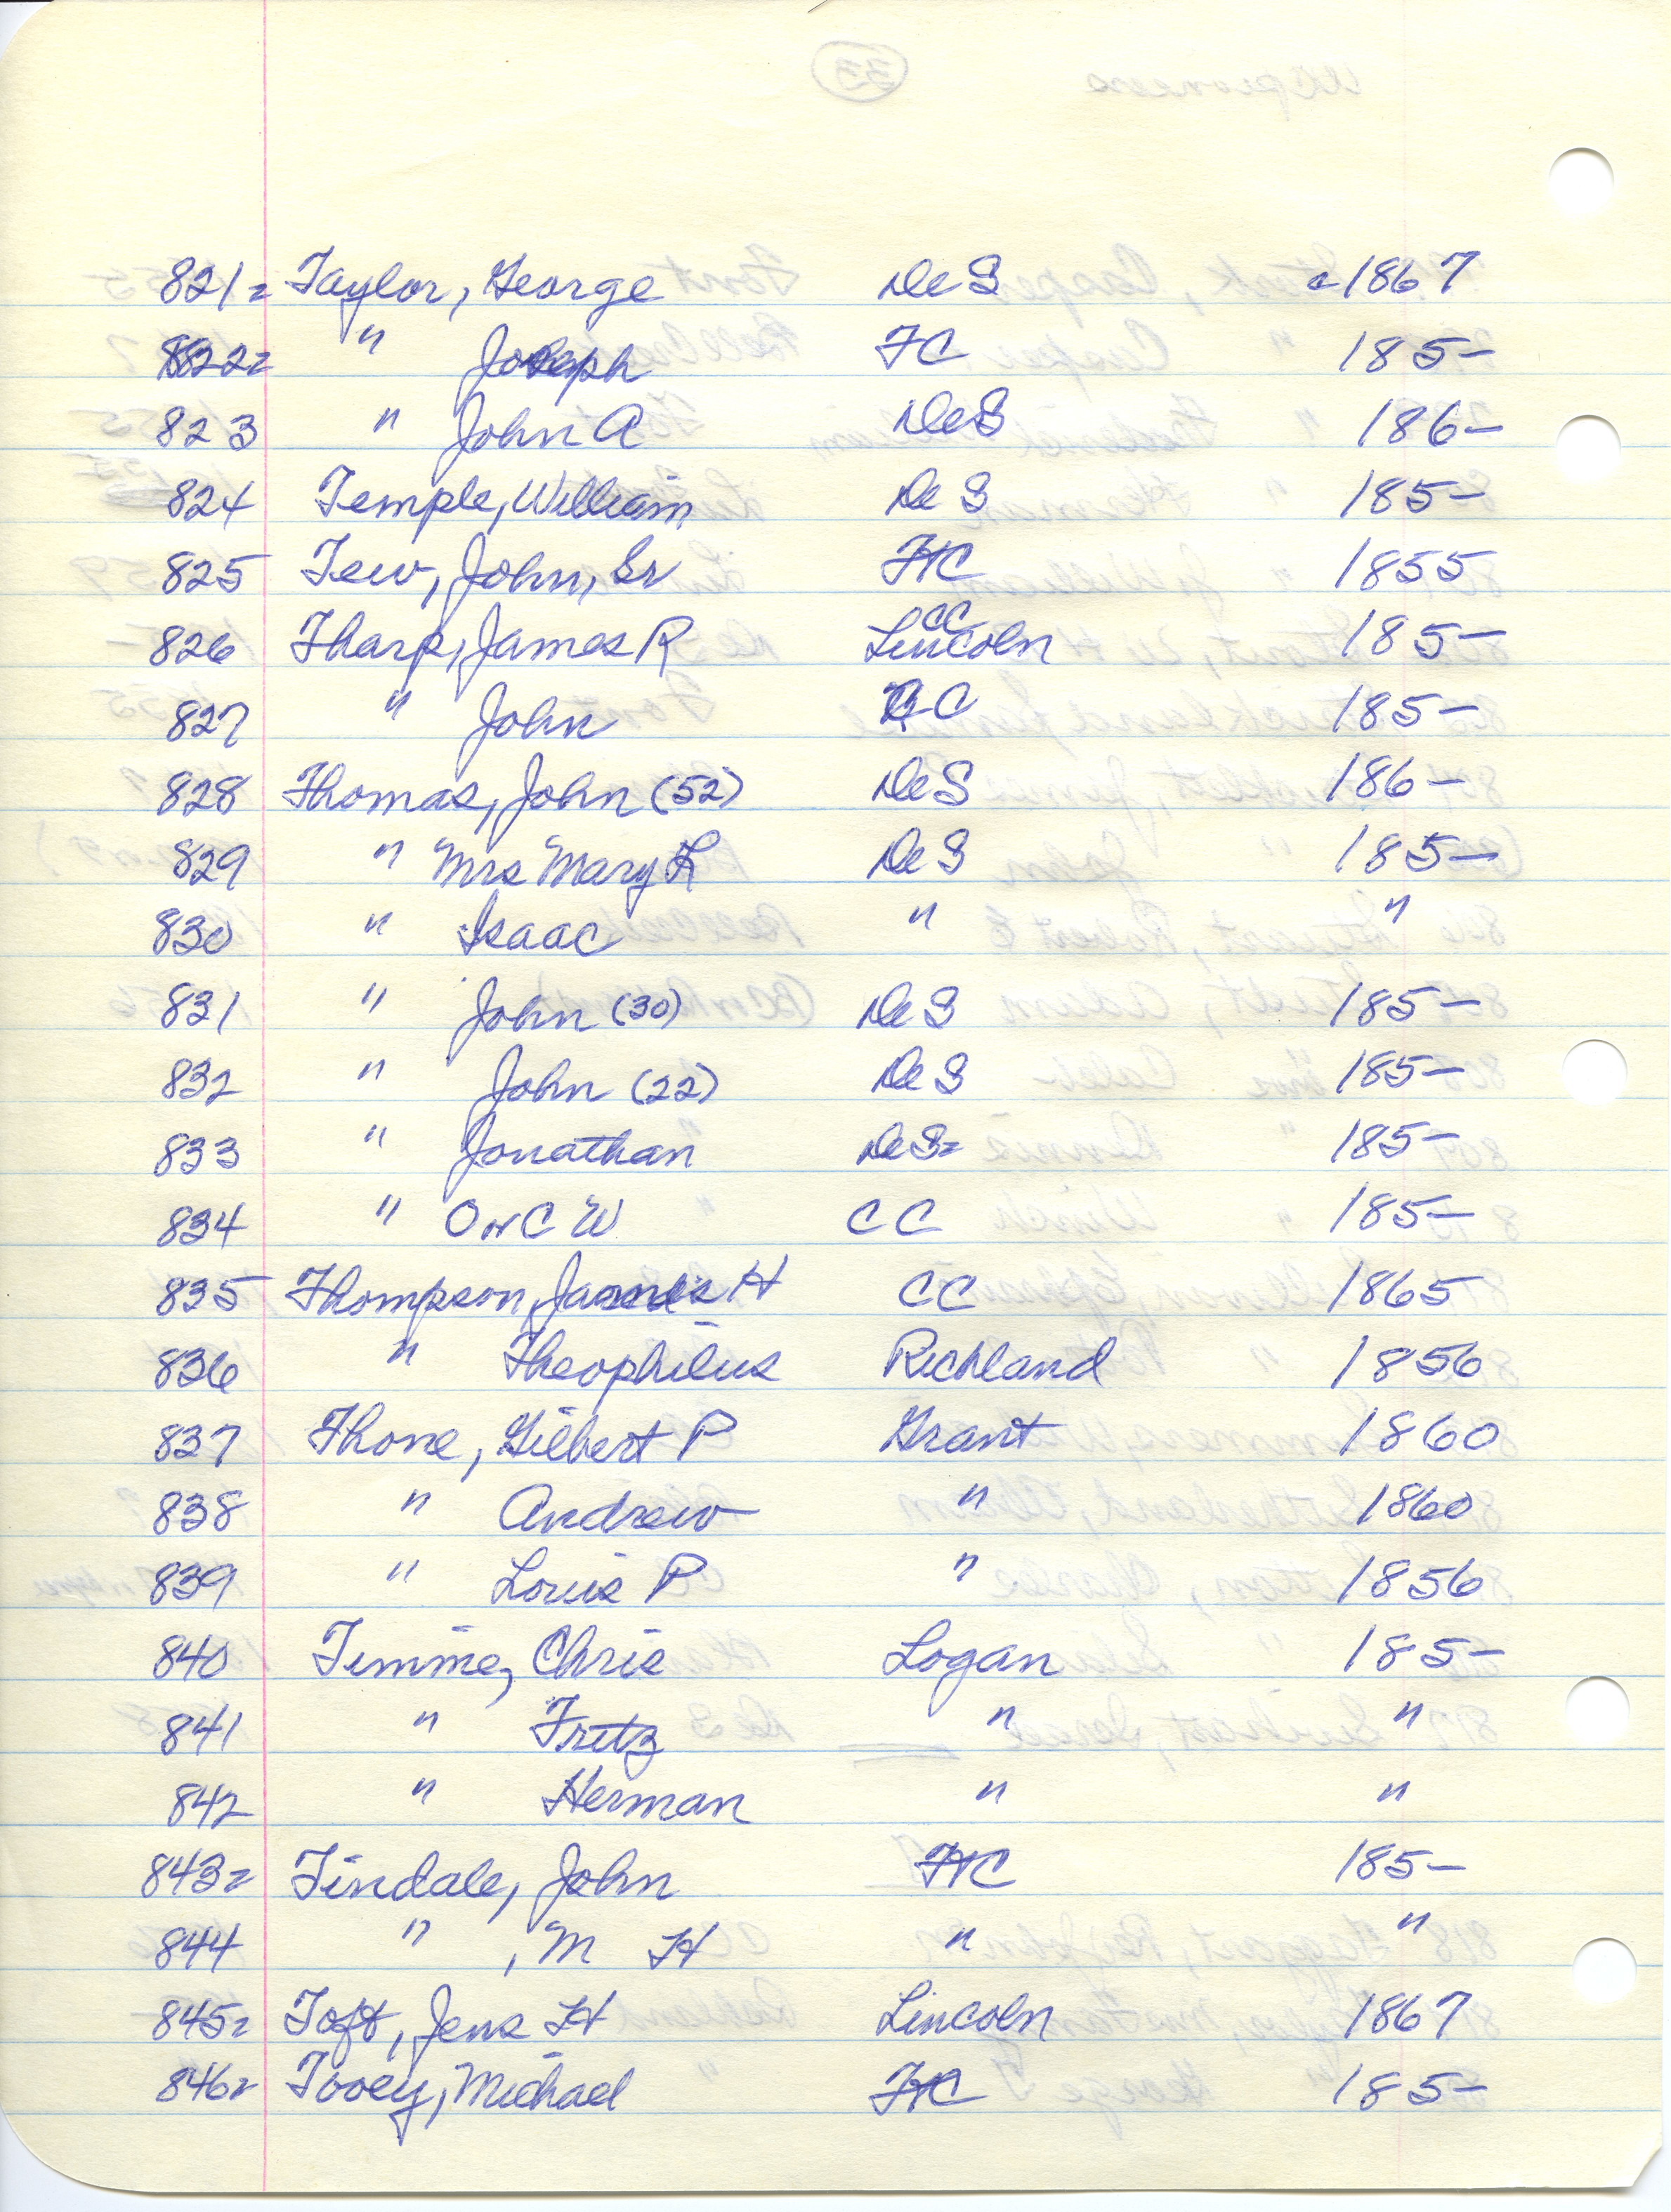 821 = Taylor, George DeS c1867
822 = " Joseph FC 185-
823 " John A DeS 186-
824 Temple, William DeS 185-
825 Tew, John, Sr FtC 1855
826 Tharp, James R CC Lincoln 185-
827 " John CC 185-
828 Thomas, John (52) DeS 186-
829 " Mrs Mary L DeS 185-
830 " Isaac " "
831 " John (30) DeS 185-
832 " John (22) DeS 185-
833 " Jonathan DeS= 185-
834 " O or C W CC 185-
835 Thompson, James H CC 1865
836 " Theophilus Richland 1856
837 Thone, Gilbert P Grant 1860
838 " Andrew " 1860
839 " Louis P " 1856
840 Timme, Chris Logan 185-
841 " Fritz " "
842 " Herman " "
843 = Tindale, John FtC 185-
844 " , M H " "
845 = Toft, Jens H Lincoln 1867
846 = Tooey, Michael FtC 185-